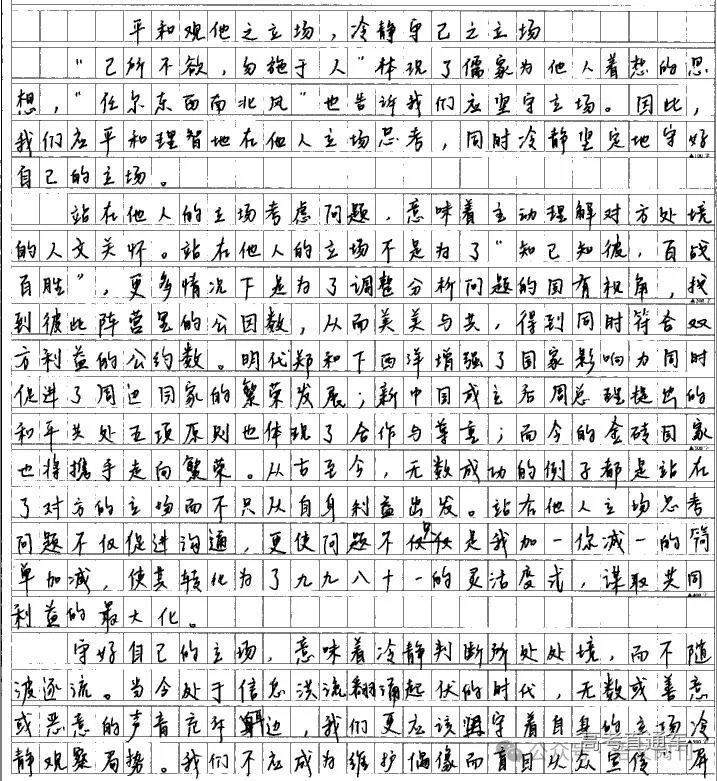 平和观他之立场，冷静守己之立场
“己所不欲，勿施于人”体现了儒家为他人着想的思
想，“任尔东西南北风”也告诉我们应坚守立场。因此，
我们应平和理智地在他人立场思考，同时冷静坚定地守好
自己的立场。
站在他人的立场考虑问题，意味着主动理解对方处境
的人文关怀。站在他人的立场不是为了“知己知彼，百战
百胜”，更多情况下是为了调整分析问题的固有视角，找
到彼此阵营里的公因数，从而美美与共，得到同时符合双
方利益的公约数。明代郑和下西洋增强了国家影响力同时
促进了周边国家的繁荣发展；新中国成立后周总理提出的
和平共处五项原则也体现了合作与尊重；而今的金砖国家
也将携手走向繁荣。从古至今，无数成功的例子都是站在
了对方的立场而不只从自身利益出发。站在他人立场思考
问题不仅促进沟通，更使问题不仅仅是我加一你减一的简
单加减，使其转化为了九九八十一的灵活变式，谋取共同
利益的最大化。
守好自己的立场，意味着冷静判断所处处境，而不随
波逐流。当今处于信息洪流翻涌起伏的时代，无数或善意
或恶意的声音充斥耳边，我们更应该坚守着自身的立场冷
静观察局势。我们不应成为维护偶像而盲目从众宣传
公众号 高考直通车